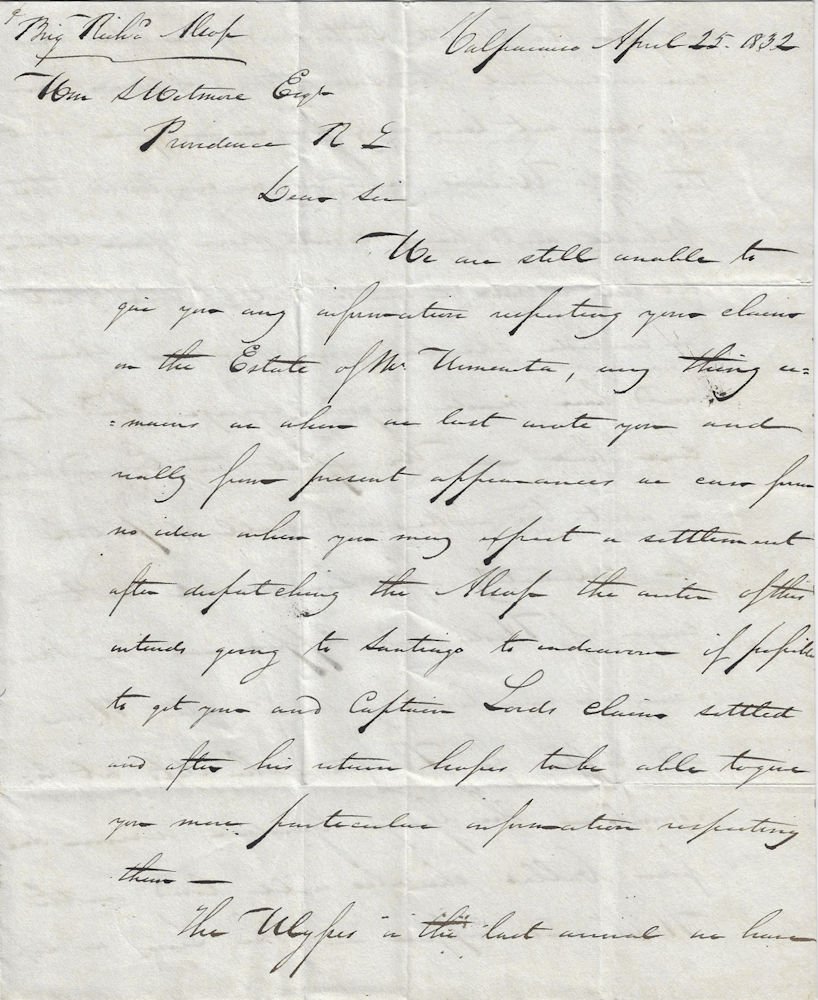 Brig Richd Alsop
Valparaiso April 25. 1832
Wm S Wetmore Esqr
Providence R I
Dear Sir
We are still unable to
give you any information respecting your claims
on the Estate of Mr. Urmeneta, every thing re=
=mains as when we last wrote you and
really from present appearances we can form
no idea when you may expect a settlement
after dispatching the Alsop the writer of this
intends going to Santiago to endeavour if possible
to get your and Captain Lords claims settled
and after his return hopes to be able to give
you more particular information respecting
them —
The Ulysses is the last arrival we have